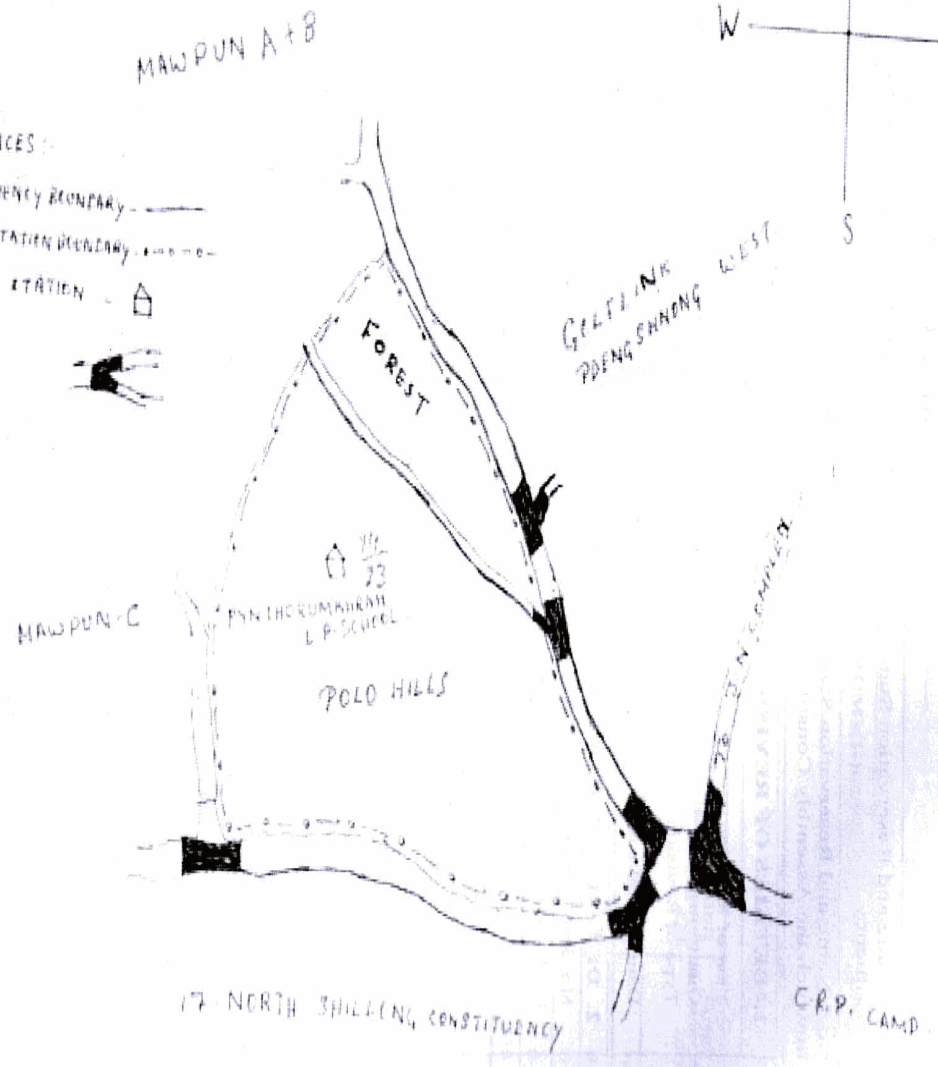 MAWPUN A+B
W
S
NCES:
ENCY BOUNDARY
TATION BOUNDARY
STATION
GOLFLINK
PDENGSHNONG WEST
FOREST
23
MAWPUN-C
PYNTHORUMKHRAH
L P. SCHOOL
POLO HILLS
TO J N COMPLEX
17 NORTH SHILLONG CONSTITUENCY
C.R.P. CAMP